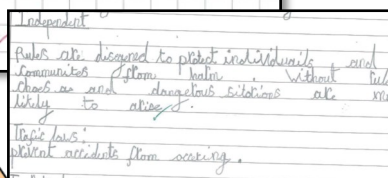 Independent
Rules are discured to protect individuails and
communites from halm. Without rul
chaos as and dangerous sitations are m
likely to arise.
Trafic laws:
prevent accidents from occuring.